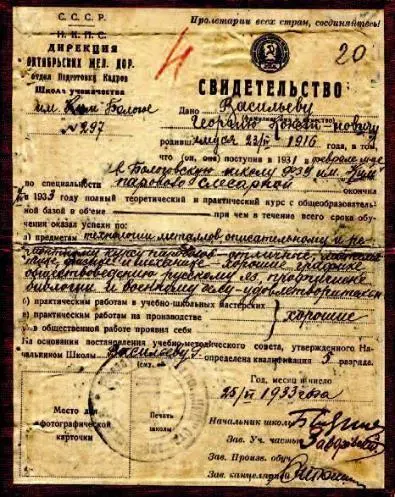 С. С. С. Р.
Пролетарии всех стран, соединяйтесь!
Н. К. П. С.
ДИРЕКЦИЯ
ОКТЯБРЬСКИХ ЖЕЛ. ДОР.
отдел Подготовку Кадров
Школа ученичества
им. Ким Бологое
№ 297
4
20
СВИДЕТЕЛЬСТВО
Дано Васильеву
Георгию
родившемуся 23/II 1916 года, в том,
что (он, она) поступив в 1931 феврале
в Бологовскую школу ФЗУ им. Ким
по специальности паровозо слесарной окончил
в 1933 полный теоретический и практический курс с общеобразователь-
ной базой в объеме при чем в течение всего срока обу-
чения оказал успехи по:
а) предметам технологии металлов, описательному и ре-
монтному курсу паровозов - отличные,
физике и механике - хорошие, графике
обществоведению русскому яз
биологии и военному делу - удовлетворительн
б) практическим работам в учебно-школьных мастерских
в) практическим работам на производстве
хорошие
г) в общественной работе проявил себя
На основании постановления учебно-методического совета, утвержденного На-
чальником Школы Васильеву Г. определена квалификация 5 разряда.
Год, месяц и число
25/II 1933 года
Место для
фотографической
карточки
Печать
школы
Начальник школы
Зав. Уч. частью
Зав. Произв. обуч.
Зав. канцелярией